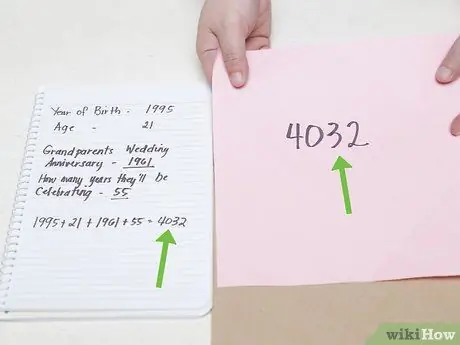 Year of Birth - 1995
Age - 21
Grandparents Wedding
Anniversary - 1961
How many years they'll be
Celebrating - 55
1995 + 21 + 1961 + 55 = 4032
4032
wikiHow